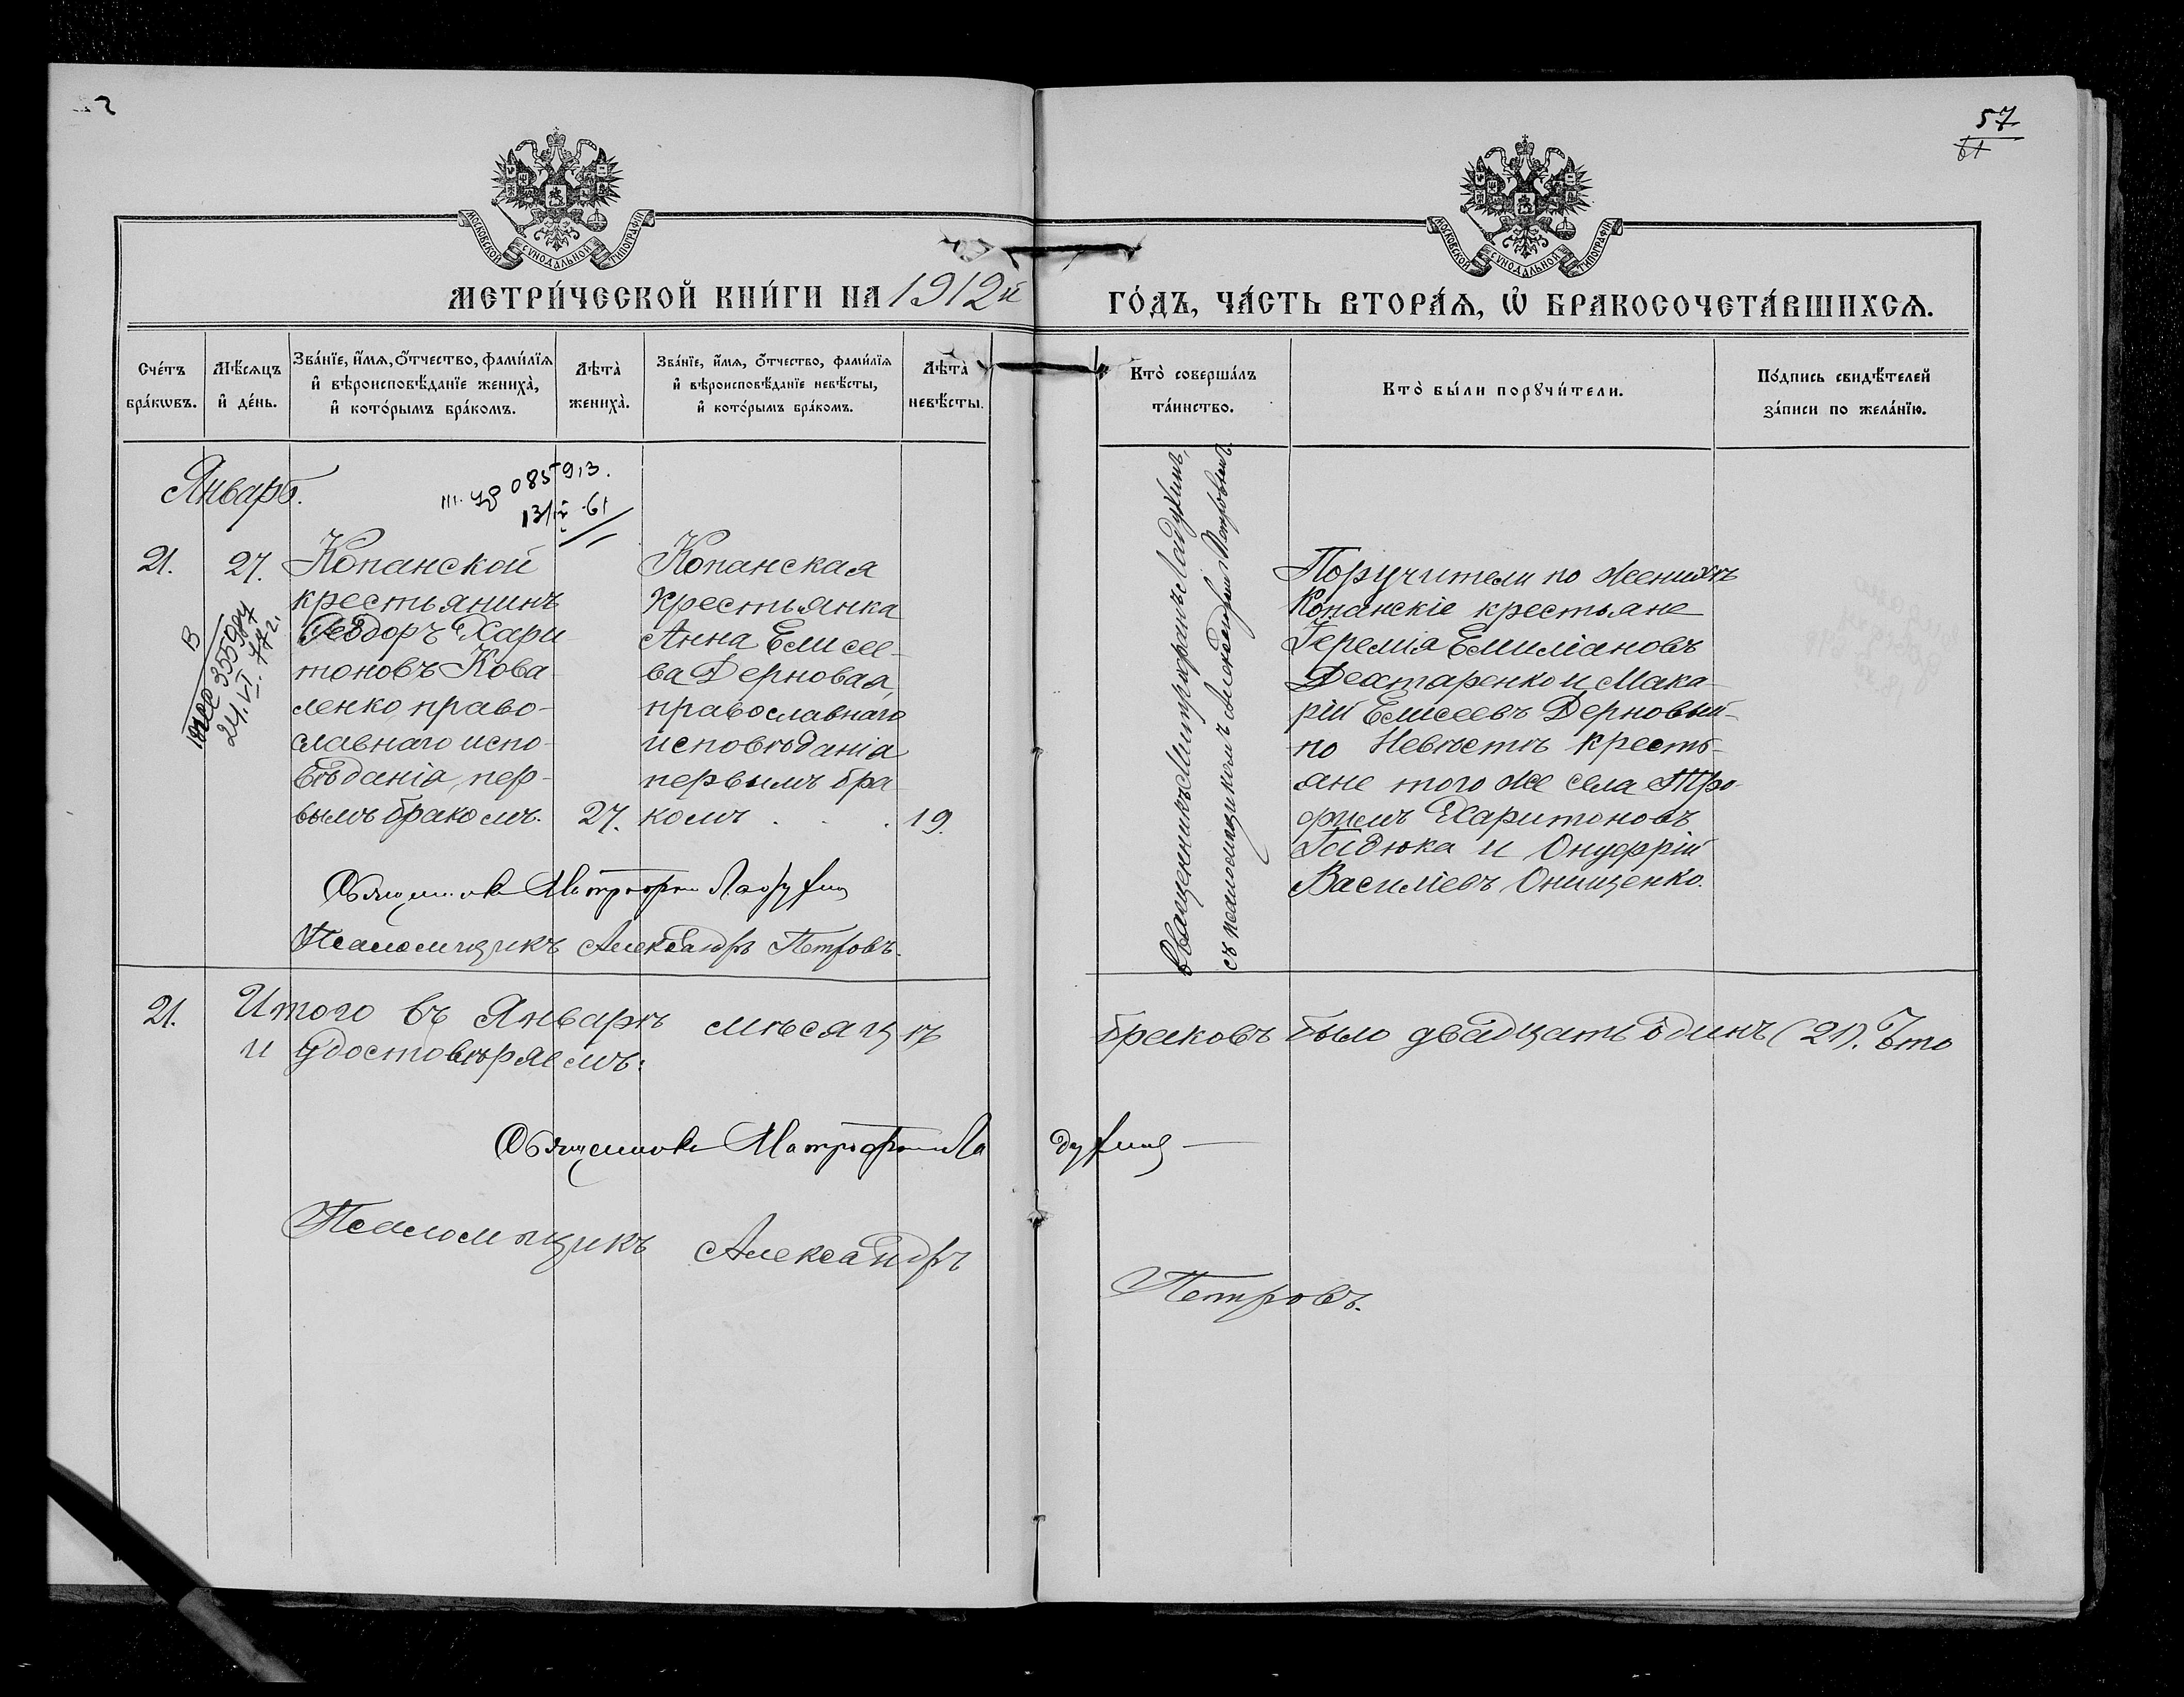 57
61
МОСКОВСКОЙ СѴНОДАЛЬНОЙ ТИПОГРАФІИ
МОСКОВСКОЙ СѴНОДАЛЬНОЙ ТИПОГРАФІИ
МЕТРИ́ЧЕСКОЙ КНИ́ГИ НА 1912й ГО́ДЪ, ЧА́СТЬ ВТОРА́Ѧ, Ѽ БРАКОСОЧЕТА́ВШИХСѦ.
Сче́тъ
бра́кѡвъ.
Мѣ́сѧцъ
и҆ де́нь.
Зва́нїе, и҆́мѧ, ѻ҆́тчество, фами́лїѧ
и҆ вѣроисповѣ́данїе жениха̀,
и҆ кото́рымъ бра́комъ.
Лѣта̀
жениха̀.
Зва́нїе, и҆́мѧ, ѻ҆́тчество, фами́лїѧ
и҆ вѣроисповѣ́данїе невѣ́сты,
и҆ кото́рымъ бра́комъ.
Лѣта̀
невѣ́сты.
Кто̀ соверша́лъ
та́инство.
Кто̀ бы́ли порꙋчи́тели.
По́дпись свидѣ́телей
за́писи по жела́нїю.
Январь.
085913.
61
21.
27.
Копанской
крестьянинъ
Ѳеодоръ Хари
тоновъ Кова
ленко, право-
славнаго испо-
вѣданія, пер-
вымъ бракомъ.
27.
Копанская
крестьянка
Анна Елисее-
ва Дерновая,
православнаго
исповѣданія
первымъ бра
комъ . . .
19.
355987
24.VI.77г.
Священникъ Митрофанъ Ладухинъ,
съ псаломщикомъ Александромъ Петровымъ.
Поручители по женихѣ
Копанскіе крестьяне
Іеремія Емиліановъ
Дехтаренко и Мака-
рій Елисеевъ Дерновый-
по невѣстѣ кресть-
яне того же села Тро-
фимъ Харитоновъ
Гадюка и Онуфрій
Василіевъ Онищенко.
Священникъ Митрофанъ Ладухинъ
Псаломщикъ Александръ Петровъ.
21.
Итого въ Январѣ мѣсяцѣ браковъ было двадцать одинъ (21). Что
и удостовѣряемъ:
Священникъ Митрофанъ Ладухинъ
Псаломщикъ Александръ Петровъ.